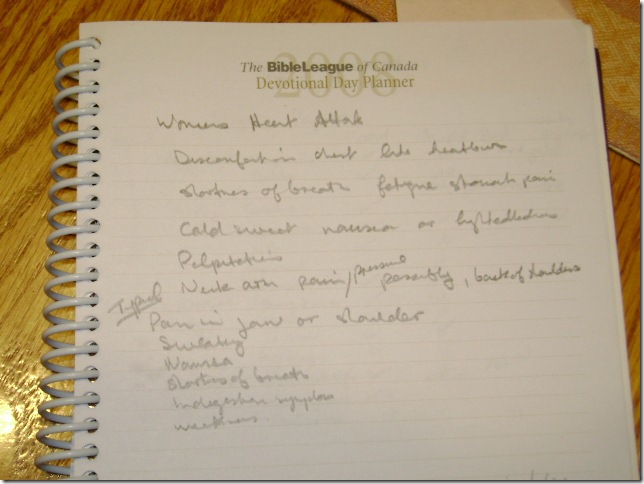 2008
The BibleLeague of Canada
Devotional Day Planner
Womens Heart Attak
Discomfort in chest like heartburn
shortnes of breath fatigue stomach pain
Cold sweat nausea or lightedledness
Palpitations
Typical Neck arm pain/pressure possibly, back of shoulders
Pain in jaw or shoulder
Sweating
Nausea
shortnes of breath
Indigestion symptoms
weakness